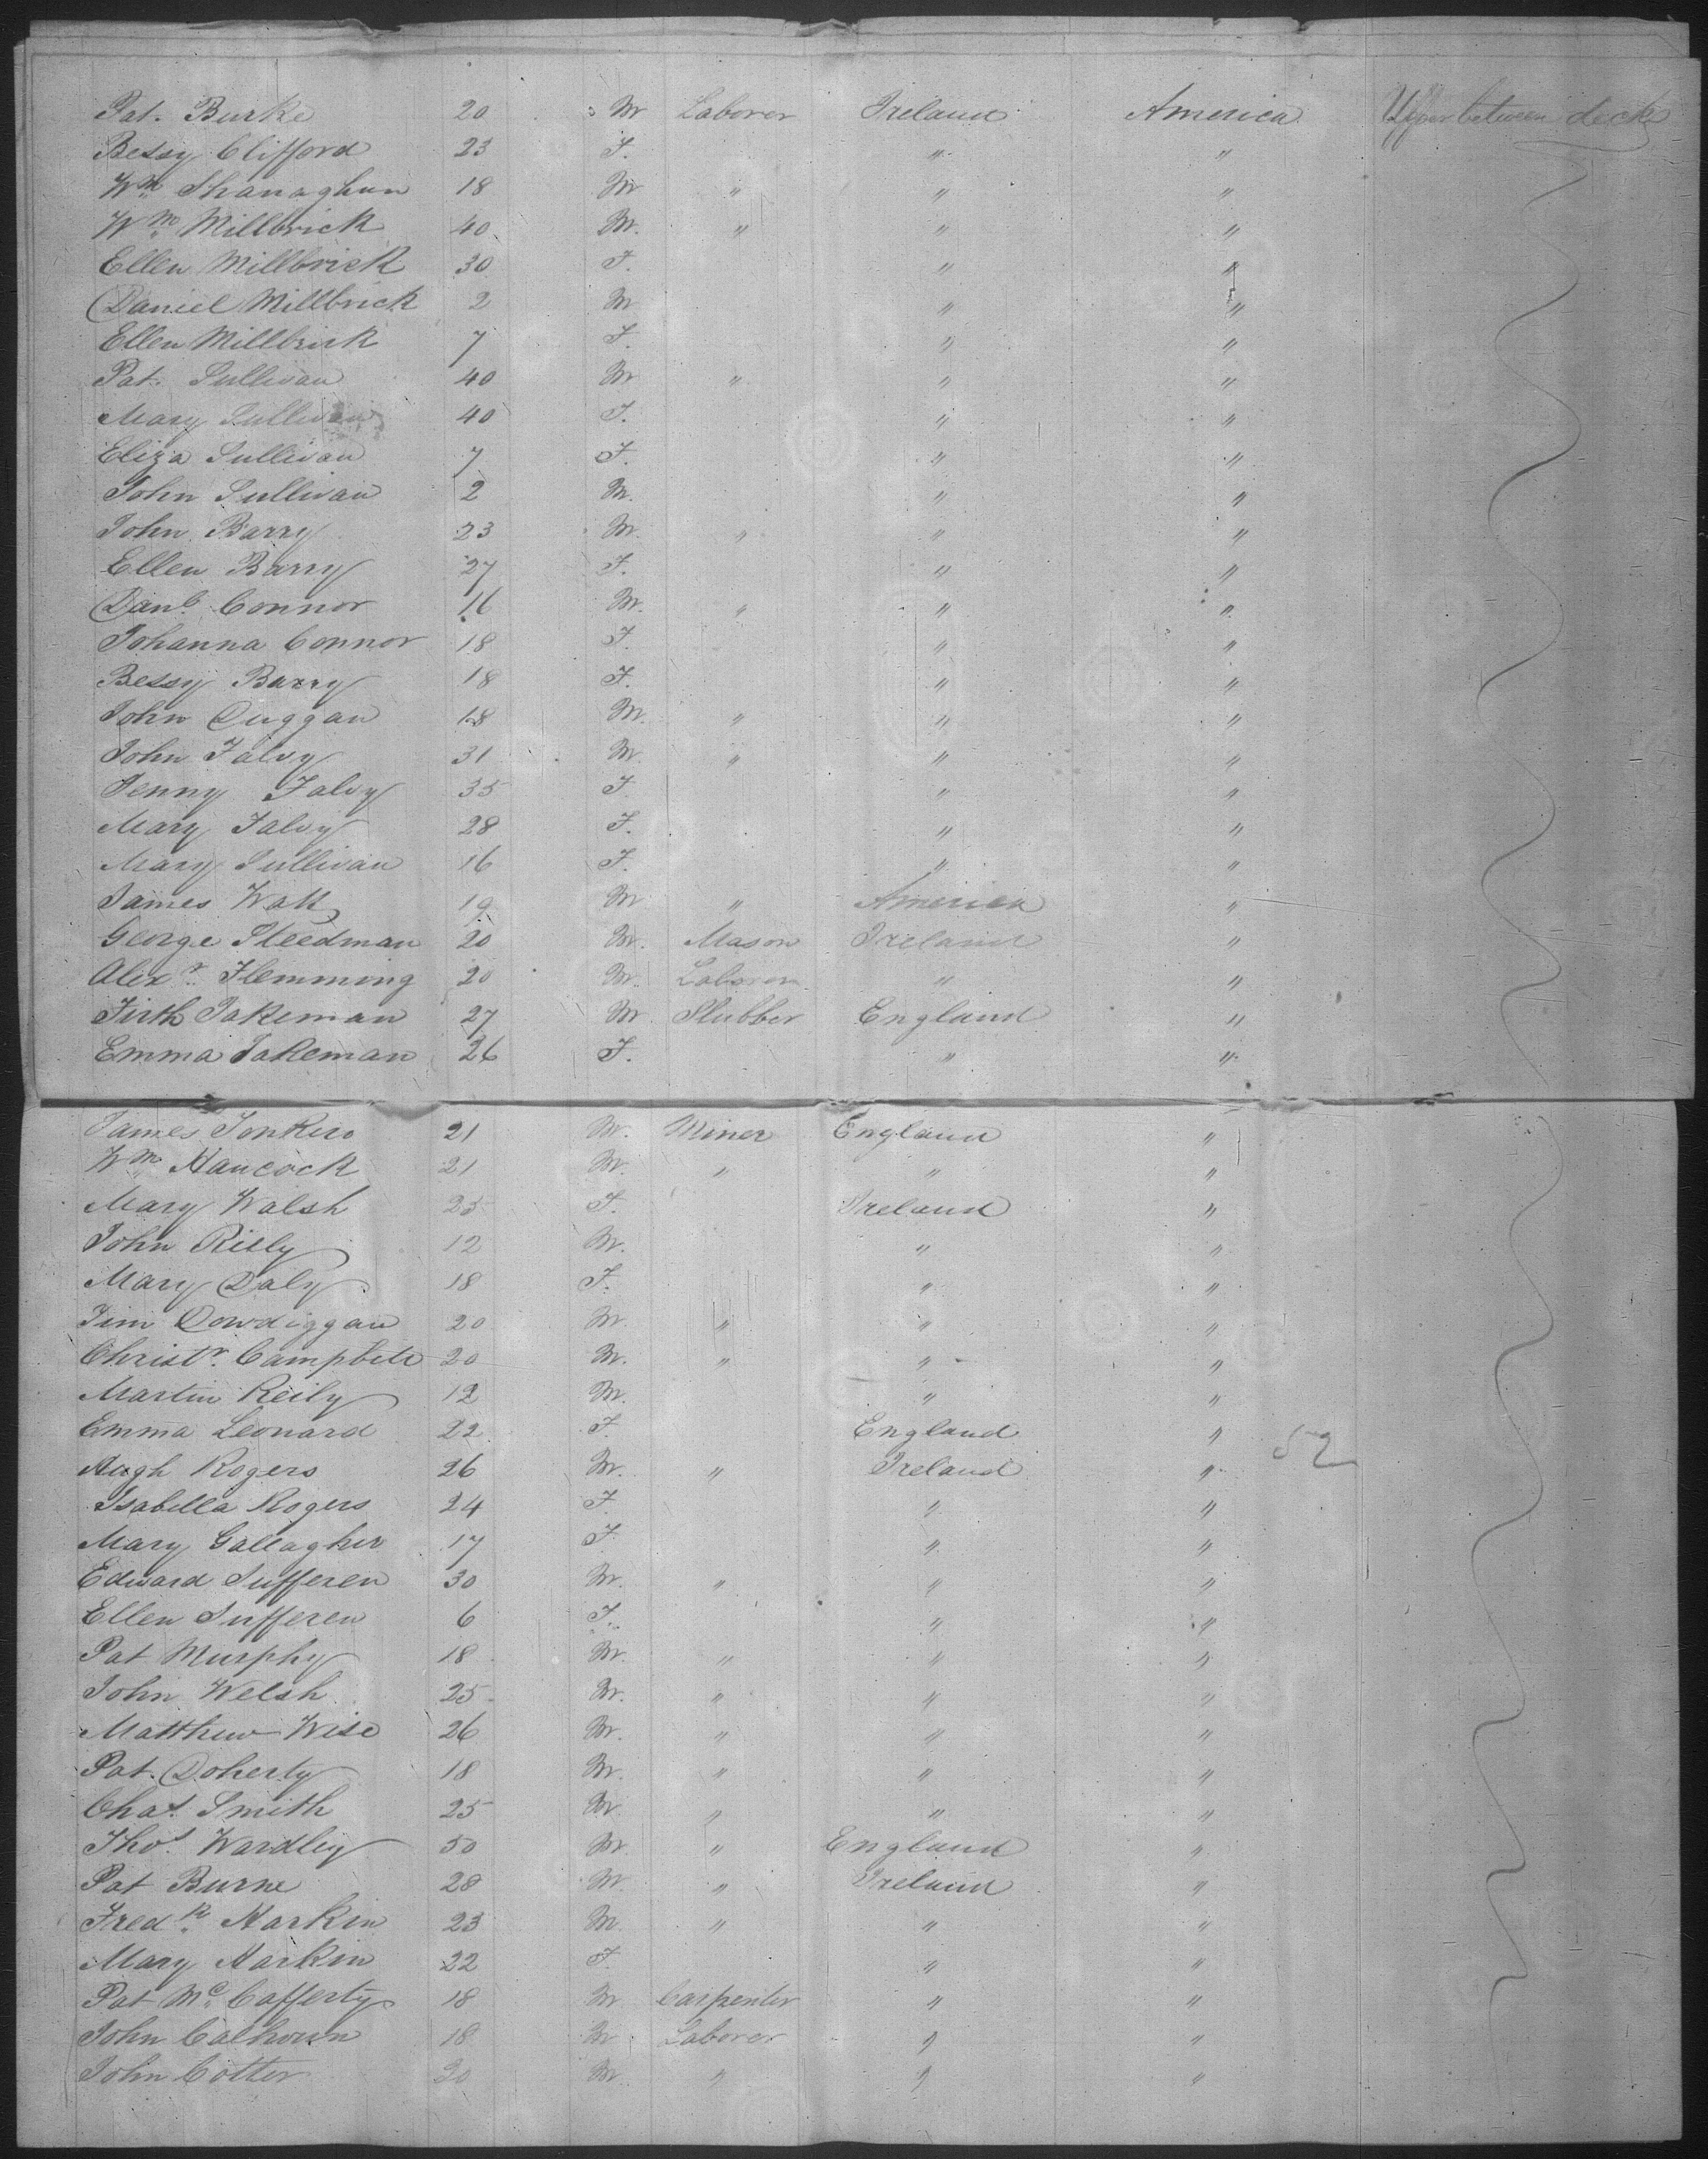 Pat. Burke 20 M Laborer Ireland America Upper between decks
Bessy Clifford 23 F. " "
Wm. Shanaghan 18 M " " "
Wm. Millbrick 40 M. " " "
Ellen Millbrick 30 F. " "
Daniel Millbrick 2 M " "
Ellen Millbrick 7 F. " "
Pat. Sullivan 40 M " " "
Mary Sullivan 40 F. " "
Eliza Sullivan 7 F. " "
John Sullivan 2 M. " "
John Barry 23 M. " " "
Ellen Barry 27 F. " "
Danl. Connor 16 M. " " "
Johanna Connor 18 F. " "
Bessy Barry 18 F. " "
John Duggan 18 M. " " "
John Falvy 31 M. " " "
Jenny Falvy 35 F " "
Mary Falvy 28 F. " "
Mary Sullivan 16 F. " "
James Watt 19 M " America "
George Steedman 20 M. Mason Ireland "
Alexr. Flemming 20 M. Laborer " "
Firth Jakeman 27 M Slubber England "
Emma Jakeman 26 F. " "
James Jonkers 21 M. Miner England "
Wm. Hancock 21 M. " " "
Mary Walsh 25 F. Ireland "
John Rielly 12 M. " "
Mary Daly 18 F. " "
Jim Dowdiggan 20 M. " " "
Christr. Campbell 20 M. " " "
Martin Reily 12 M. " "
Emma Leonard 22 F. England " 52
Hugh Rogers 26 M. " Ireland "
Isabella Rogers 24 F. " "
Mary Gallagher 17 F " "
Edward Sufferen 30 M. " " "
Ellen Sufferen 6 F. " "
Pat Murphy 18 M. " " "
John Welsh 25 M. " " "
Matthew Wise 26 M. " " "
Pat. Doherty 18 M. " " "
Chas. Smith 25 M. " " "
Thos. Wardley 50 M. " England "
Pat Burne 28 M. " Ireland "
Fredk. Harkin 23 M. " " "
Mary Harkin 22 F. " "
Pat McCafferty 18 M Carpenter " "
John Calhoun 18 M Laborer " "
John Cotter 20 M. " " "